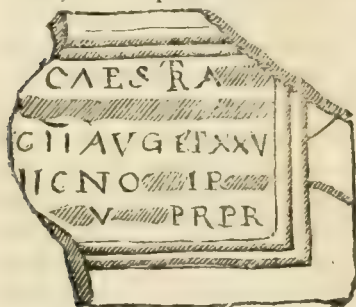 CAES RA
G II AVG ET XXV
IICNO IP
V PRPR